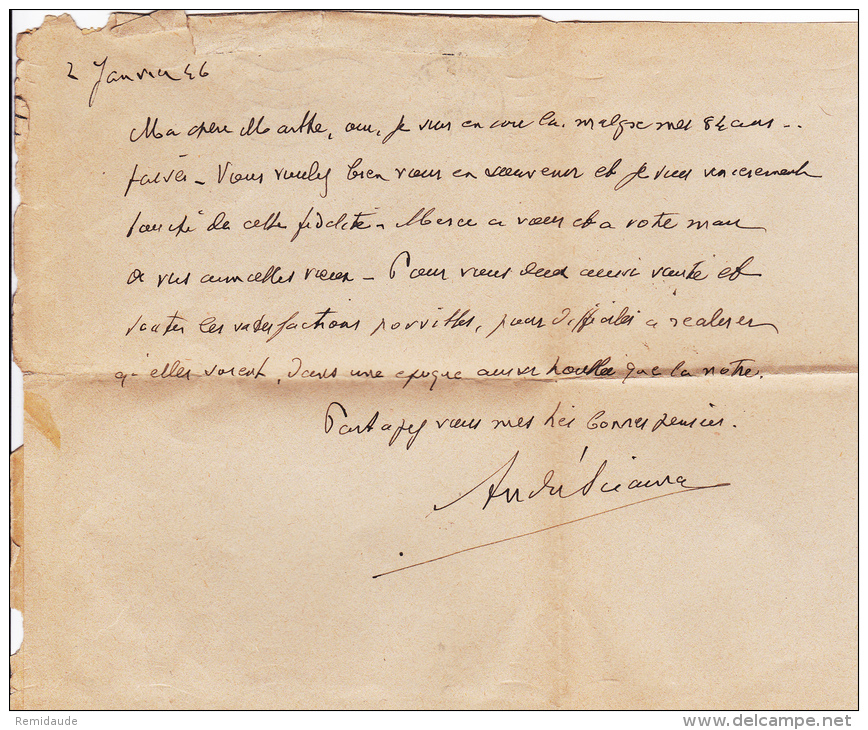 2 Janvier 46
Ma chère Marthe, oui, je suis encore là. malgré mes 82 ans
passés - Vous voulez bien vous en souvenir et je suis sincèrement
touché de cette fidélité - Merci à vous et à votre mari
de vos annuelles vœux - Pour vous deux aussi santé et
toutes les satisfactions possibles, pour difficiles à réaliser
qu'elles soient, dans une époque aussi troublée que la notre.
Partagez vous mes très bonnes pensées.
André
Remidaude
www.delcampe.net